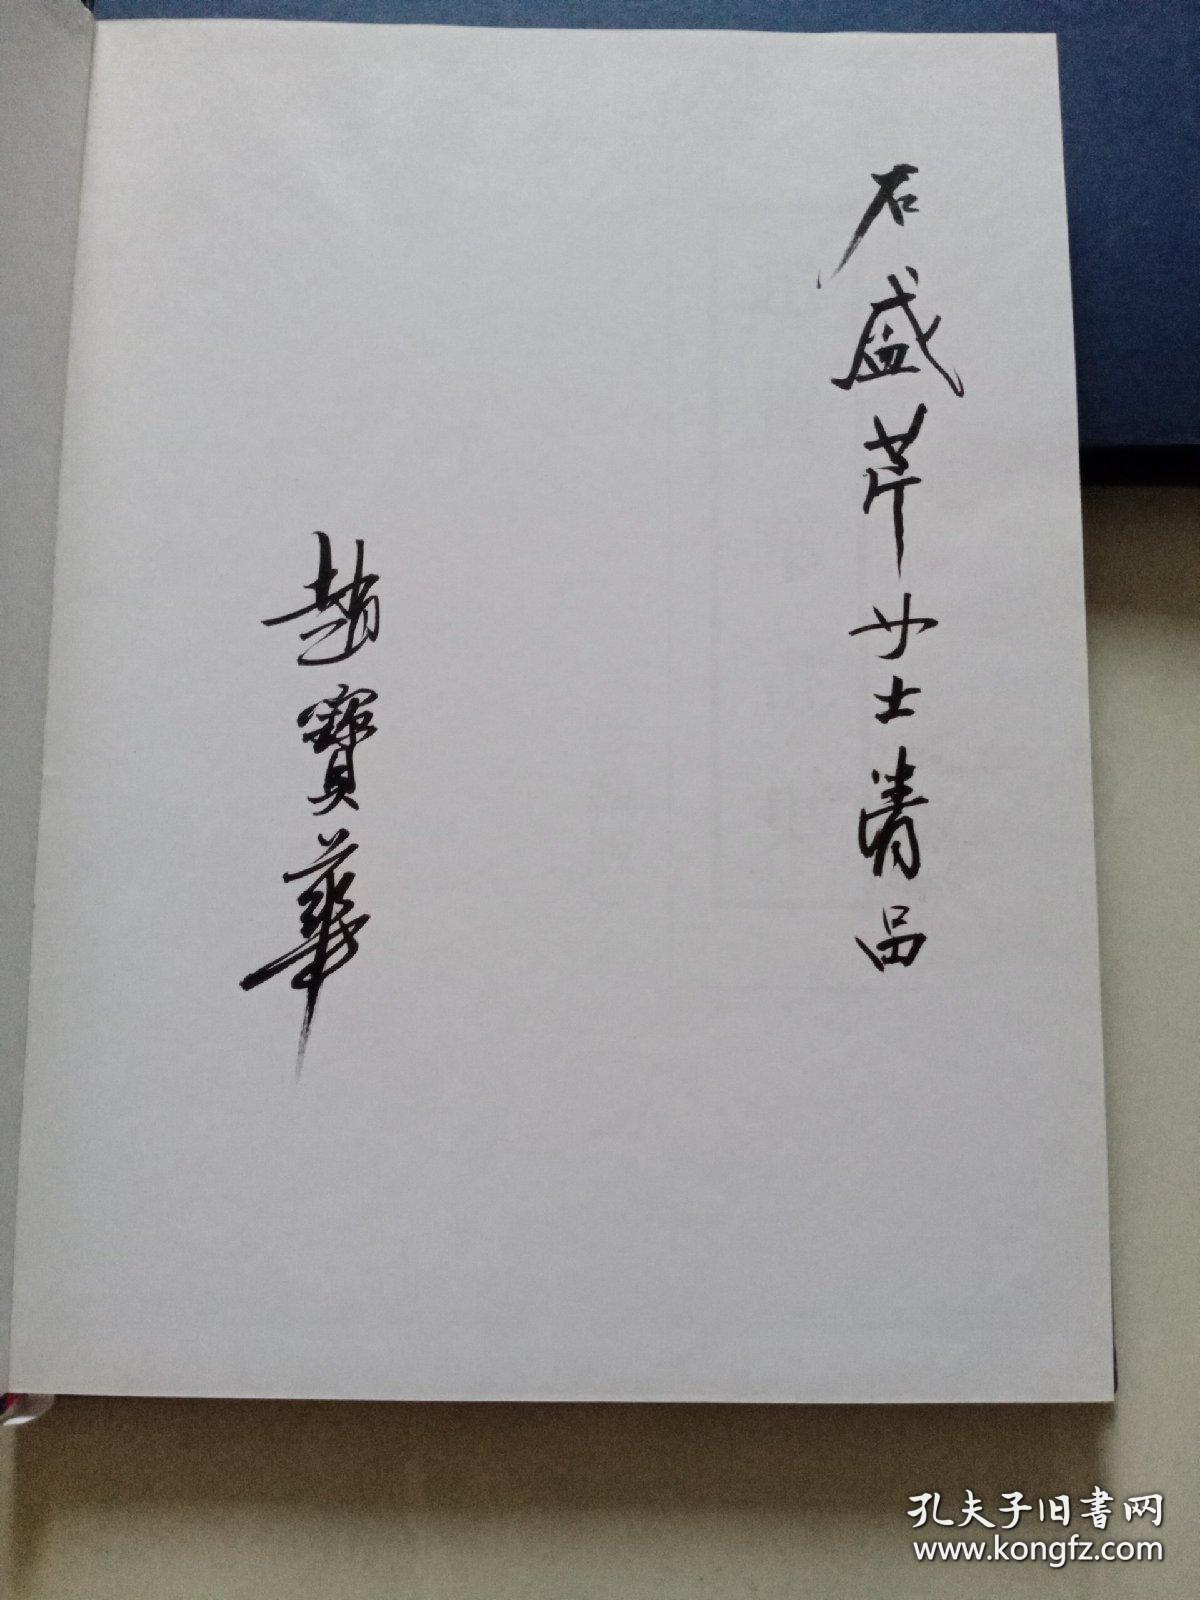 石盛芹女士清品
趙寳華
孔夫子旧书网
www.kongfz.com